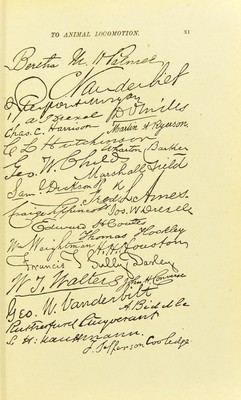 TO ANIMAL LOCOMOTION. xi
Bertha M. H. Palmer
C. Vanderbilt
J. Pierpont Morgan
Chas. C. Harrison Martin A. Ryerson.
C L Hutchinson
Wharton Barker
Geo. W. Childs
Marshall Field
Sam'l Dickson
Fredk L. Ames.
Craige Lippincott Jos. W. Drexel
Edward H. Coates
Thomas Hockley
Wm Wightman H. H. Houston
Francis Darley
W. T. Walters John H. Converse
Geo. W. Vanderbilt
A. Biddle
Rutherfurd Stuyvesant
S. H. Kauffmann.
T. Jefferson Coolidge